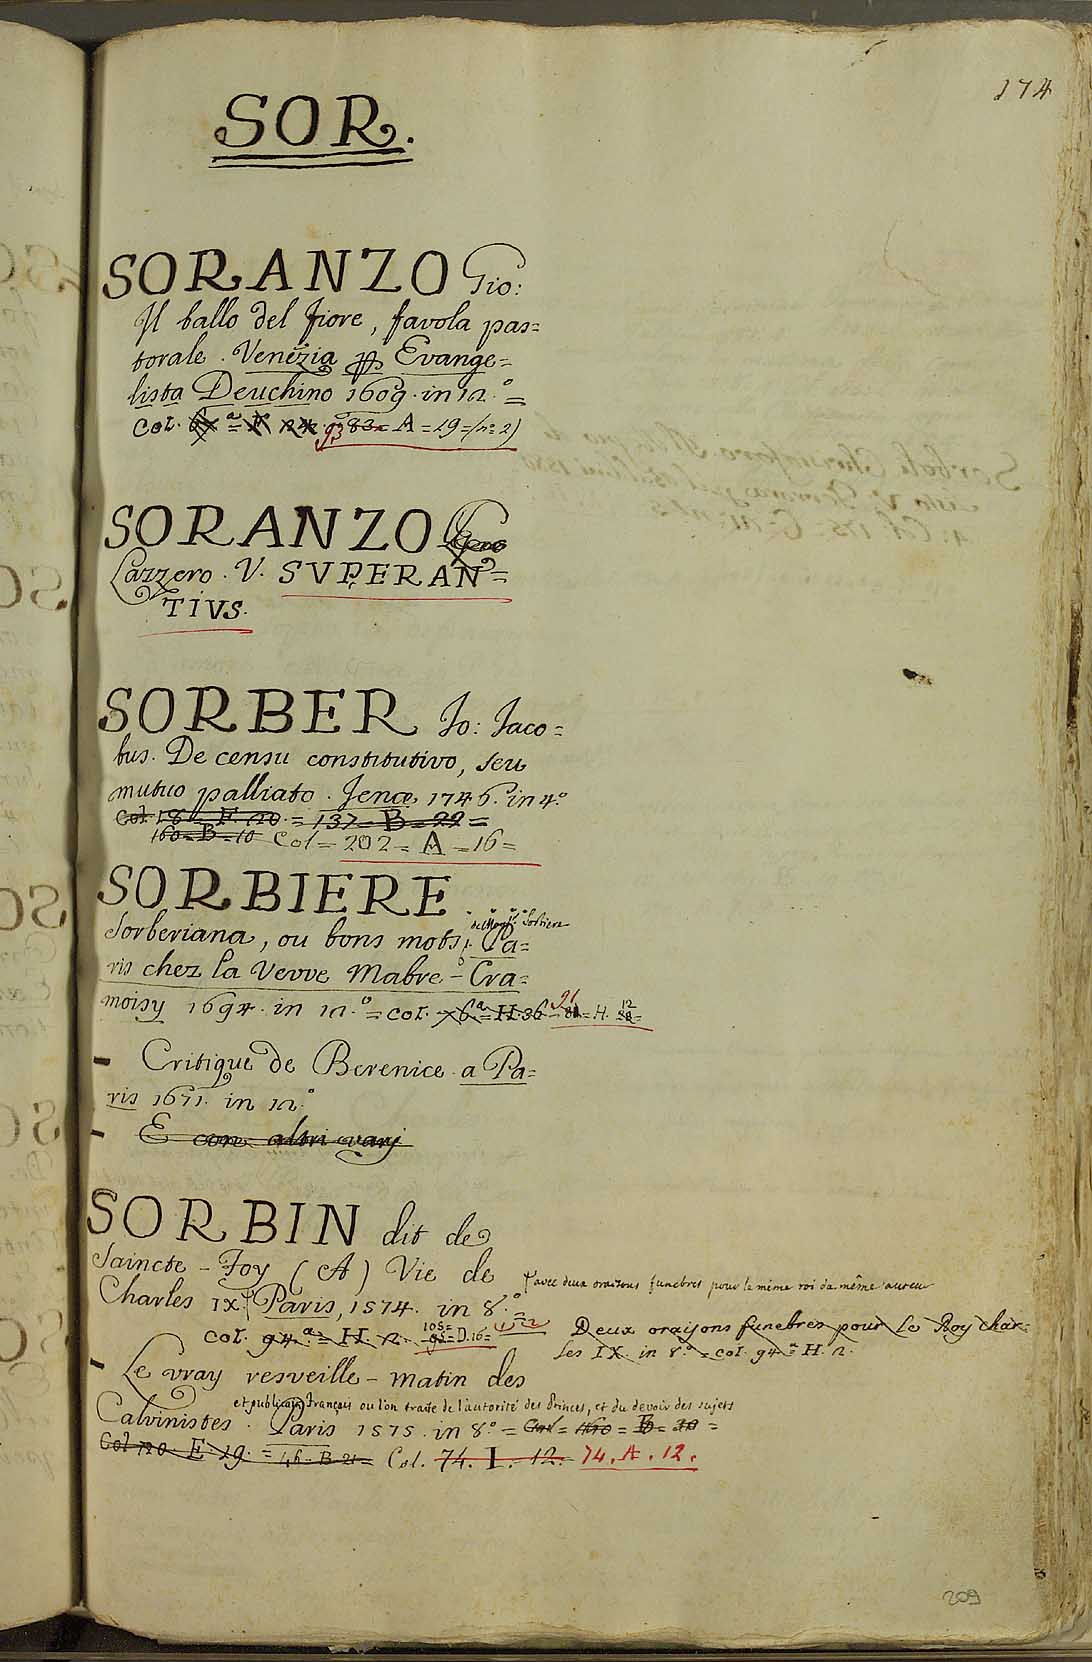 174
SOR.
SORANZO Gio:
Il ballo del fiore, favola pas=
torale. Venezia pp Evange=
lista Deuchino 1609. in 12.° =
Col. 93 83 = A = 19 = (n° 2)
SORANZO
Lazzero. V. SUPERAN=
TIUS.
SORBER Jo: Jaco=
bus. De censu constitutivo, seu
mutuo palliato. Jenæ 1746. in 4.°
Col. 18 = F. 20. = 137 = B = 22 =
160 = B = 10 Col = 202 = A = 16 =
SORBIERE . . . .
de Monsr. Sorbiere
Sorberiana, ou bons mots. Pa=
ris chez la Veuve Mabre-Cra=
moisy 1694. in 12.° = Col. 76ª = H. 36 91 = H. 12
- Critique de Berenice. a Pa=
ris 1671. in 12.°
- E con altri varj
SORBIN dit de
Saincte-Foy (A) Vie de
avec deux oraisons funebres pour le même roi da même auteur
Charles IX. Paris, 1574. in 8.° =
Col. 94ª = H. 2. 105 = D. 16 =
Deux oraisons funebres pour Le Roy Char=
les IX. in 8.° = Col. 94ª H. 2.
- Le vray resveille-matin des
et publicains Français ou l'on traite de l'autorité des Princes, et du devoir des sujets
Calvinistes. Paris 1575. in 8.° = Col = 160 = B = 30 =
Col 120. E. 19. = 46 = B 21 = Col. 74. I. 12. 74. A. 12.
209